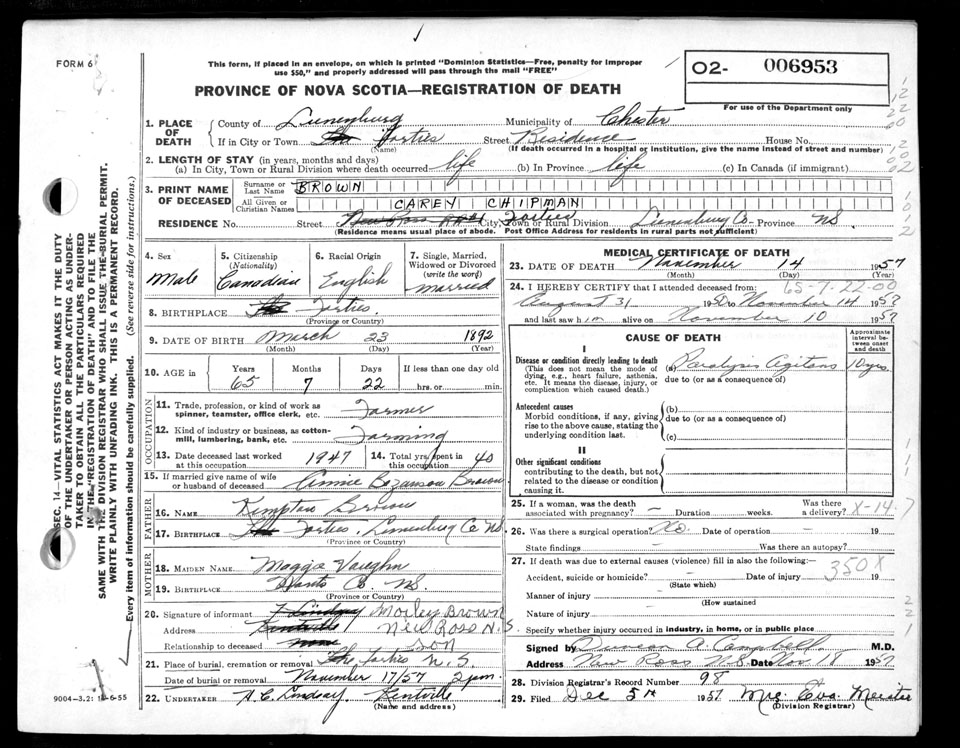 FORM 6
This form, if placed in an envelope, on which is printed "Dominion Statistics—Free, penalty for improper
use $50," and properly addressed will pass through the mail "FREE"
O2- 006953
PROVINCE OF NOVA SCOTIA—REGISTRATION OF DEATH
For use of the Department only
1. PLACE OF DEATH
County of Lunenburg Municipality of Chester
If in City or Town The Forties Street Residence House No.
(Name) (If death occurred in a hospital or institution, give the name instead of street and number)
2. LENGTH OF STAY (in years, months and days)
(a) In City, Town or Rural Division where death occurred life (b) In Province life (c) In Canada (if immigrant)
3. PRINT NAME OF DECEASED
Surname or Last Name BROWN
All Given or Christian Names CAREY CHIPMAN
RESIDENCE No. Street New Ross RR#1 City, Town or Rural Division Forties Lunenburg Co. Province NS
(Residence means usual place of abode. Post Office Address for residents in rural parts not sufficient)
4. Sex Male
5. Citizenship (Nationality) Canadian
6. Racial Origin English
7. Single, Married, Widowed or Divorced (write the word) Married
8. BIRTHPLACE The Forties.
(Province or Country)
9. DATE OF BIRTH March 23 1892
(Month) (Day) (Year)
10. AGE in Years 65 Months 7 Days 22 If less than one day old hrs. or min.
OCCUPATION
11. Trade, profession, or kind of work as spinner, teamster, office clerk, etc. Farmer
12. Kind of industry or business, as cotton-mill, lumbering, bank, etc. Farming
13. Date deceased last worked at this occupation 1947 14. Total yrs. spent in this occupation 40
15. If married give name of wife or husband of deceased Annie Bezanson Brown
FATHER
16. NAME Kempton Brown
17. BIRTHPLACE The Forties, Lunenburg Co NS.
(Province or Country)
MOTHER
18. MAIDEN NAME Maggs Vaughn
19. BIRTHPLACE Hants Co NS
(Province or Country)
20. Signature of informant F Lindsay Morley Brown
Address Kentville New Ross N.S.
Relationship to deceased none son
21. Place of burial, cremation or removal The Forties N.S.
Date of burial or removal November 17/57 2 pm.
22. UNDERTAKER A. C. Lindsay Kentville
(Name and address)
9004—3.2: 10-6-55
MEDICAL CERTIFICATE OF DEATH
23. DATE OF DEATH November 14 1957
(Month) (Day) (Year)
65-7-22-00
24. I HEREBY CERTIFY that I attended deceased from:
August 31 19 to November 14 1957
and last saw him alive on November 10 1957
CAUSE OF DEATH
Approximate interval between onset and death
I
Disease or condition directly leading to death
(This does not mean the mode of dying, e.g., heart failure, asthenia, etc. It means the disease, injury, or complication which caused death.)
(a) Paralysis Agitans 10 yrs
due to (or as a consequence of)
Antecedent causes
Morbid conditions, if any, giving rise to the above cause, stating the underlying condition last.
(b)
due to (or as a consequence of)
(c)
II
Other significant conditions
contributing to the death, but not related to the disease or condition causing it.
25. If a woman, was the death associated with pregnancy? — Duration weeks. Was there a delivery? X-14
26. Was there a surgical operation? No. Date of operation — 19
State findings — Was there an autopsy?
27. If death was due to external causes (violence) fill in also the following:— 350X
Accident, suicide or homicide? Date of injury 19
(State which)
Manner of injury
(How sustained
Nature of injury
Specify whether injury occurred in industry, in home, or in public place
Signed by Duncan A. Campbell M.D.
Address New Ross N.S. Date Nov 18 1957
28. Division Registrar's Record Number 98
29. Filed Dec 5th 1957 Mrs. Eva Meister
(Division Registrar)
SEC. 14—VITAL STATISTICS ACT MAKES IT THE DUTY
OF THE UNDERTAKER OR PERSON ACTING AS UNDER-
TAKER TO OBTAIN ALL THE PARTICULARS REQUIRED
IN THE "REGISTRATION OF DEATH" AND TO FILE THE
SAME WITH THE DIVISION REGISTRAR WHO SHALL ISSUE THE BURIAL PERMIT.
WRITE PLAINLY WITH UNFADING INK. THIS IS A PERMANENT RECORD.
Every item of information should be carefully supplied. (See reverse side for instructions.)